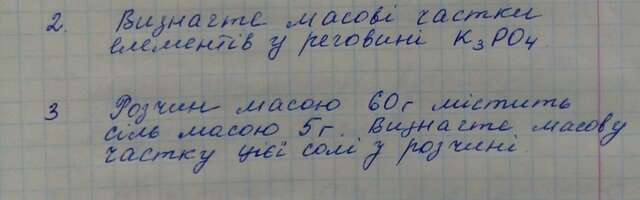 2. Визначте масові частки
елементів у речовині K₃PO₄.
3 Розчин масою 60г містить
сіль масою 5г. Визначте масову
частку цієї солі у розчині